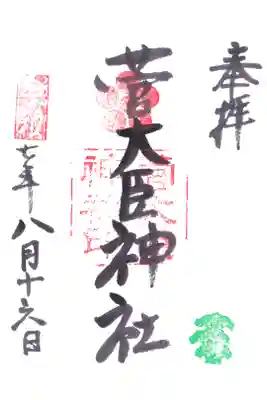 奉拝
菅大臣神社
七年八月十六日